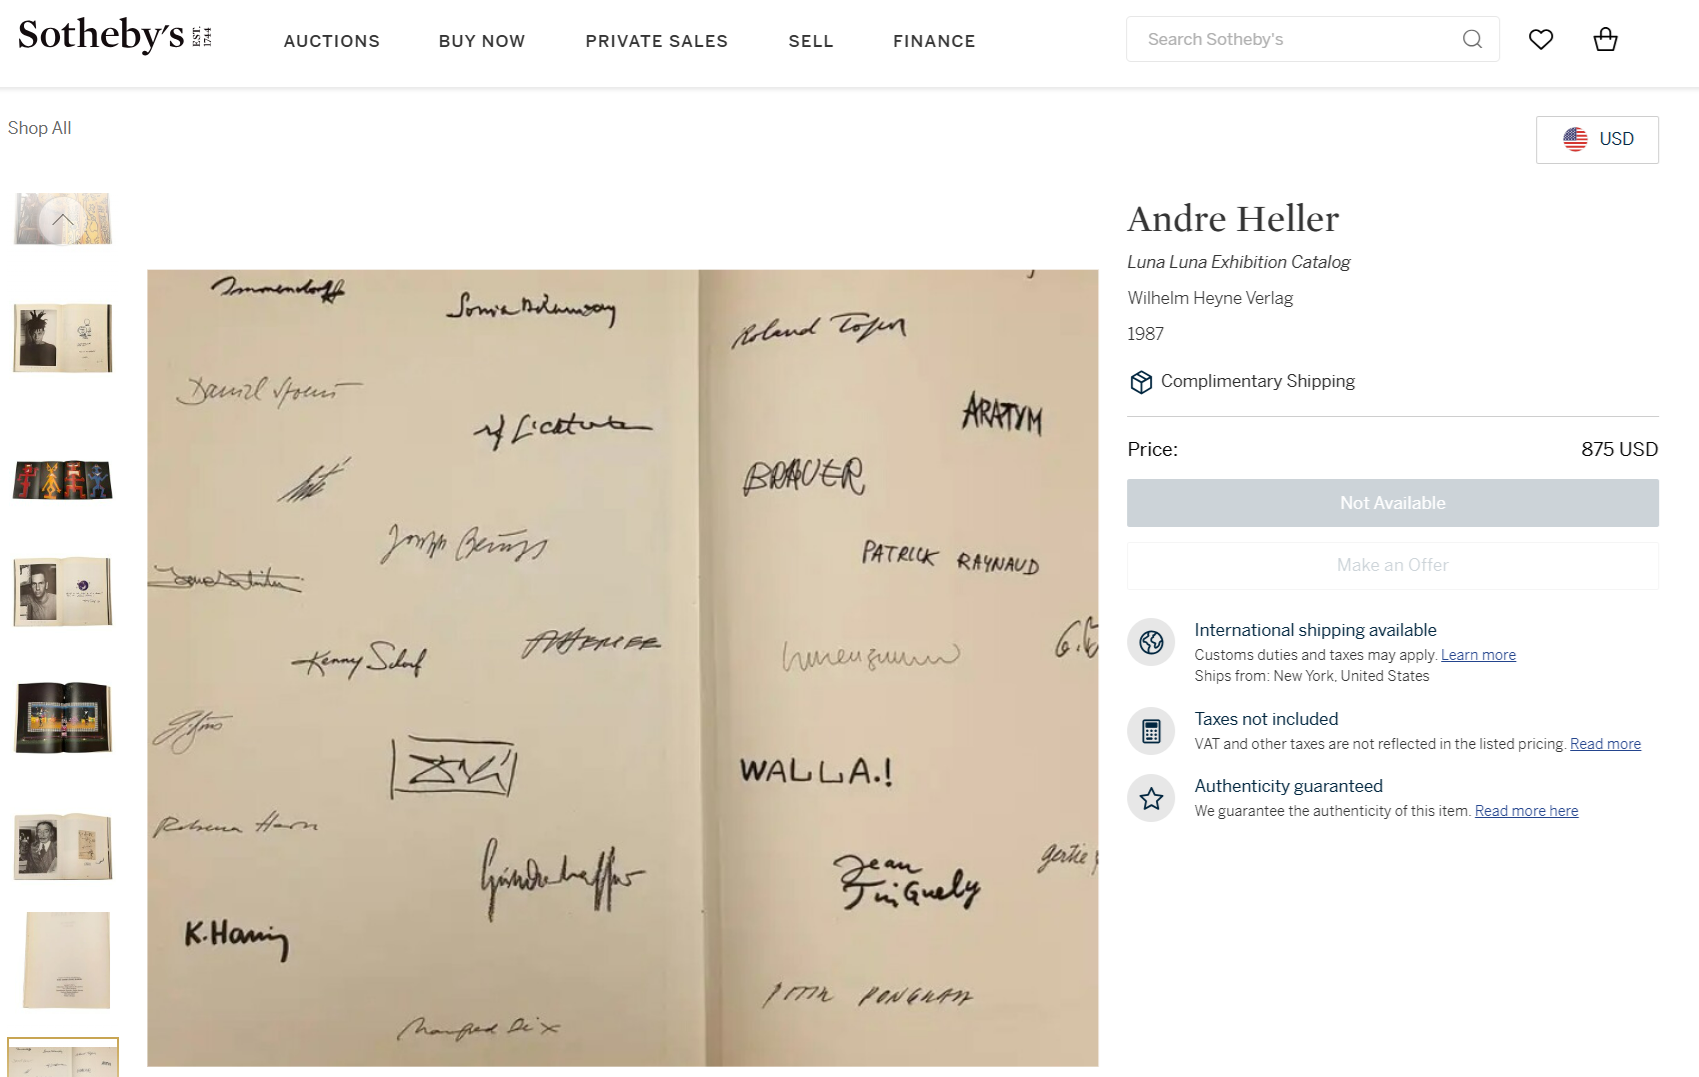 Sotheby's EST. 1744
AUCTIONS BUY NOW PRIVATE SALES SELL FINANCE
Search Sotheby's
Shop All
USD
Andre Heller
Luna Luna Exhibition Catalog
Wilhelm Heyne Verlag
1987
Complimentary Shipping
Price: 875 USD
Not Available
Make an Offer
International shipping available
Customs duties and taxes may apply. Learn more
Ships from: New York, United States
Taxes not included
VAT and other taxes are not reflected in the listed pricing. Read more
Authenticity guaranteed
We guarantee the authenticity of this item. Read more here
Immendorff
Sonia Delaunay
Daniel Spoerri
rf Lichtenstein
Joseph Beuys
Kenny Scharf
Rebecca Horn
K. Haring
Manfred Deix
Roland Topor
ARATYM
BRAUER
PATRICK RAYNAUD
WALLA.!
Jean
Tinguely
gertie